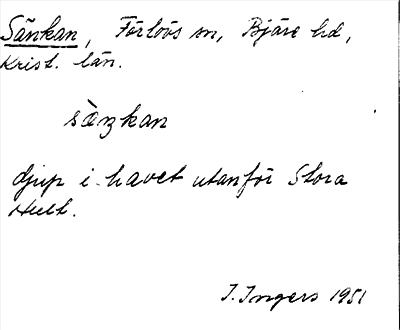 Sänkan, Förlövs sn, Bjäre hd,
Krist. län.
sàŋkan
djup i havet utanför Stora
Hult.
I. Ingers 1951